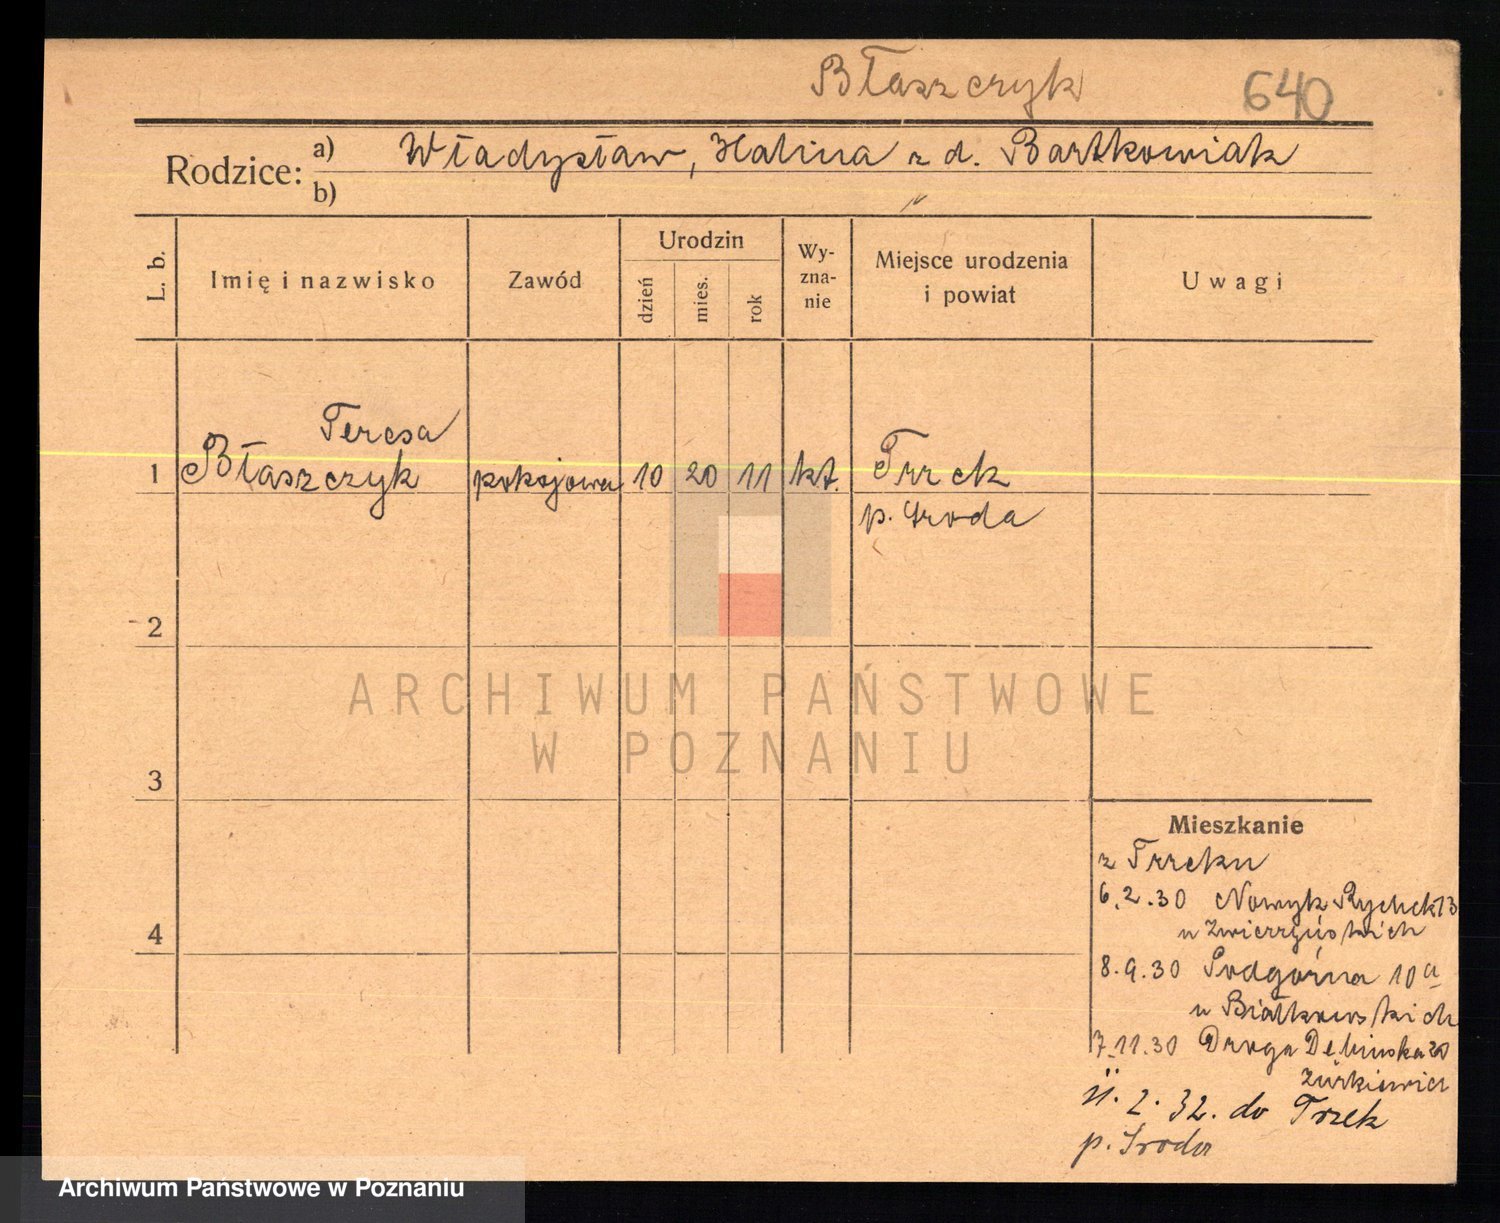 Błaszczyk 640
Rodzice: a) Władysław, Halina z d. Bartkowiak
b)
L. b. Imię i nazwisko Zawód Urodzin dzień mies. rok Wy-zna-nie Miejsce urodzenia i powiat Uwagi
Teresa
1 Błaszczyk pokojowa 10 20 11 kt. Trzek
p. Środa
2
ARCHIWUM PAŃSTWOWE
W POZNANIU
3
Mieszkanie
z Trzeku
6.2.30 Nowy Rynek 13
4
u Zwierzyńskich
8.9.30 Podgórna 10a
u Białkowskich
7.11.30 Droga Dębińska 20
Żurkiewicz
11.2.32. do Trzek
p. Środa
Archiwum Państwowe w Poznaniu